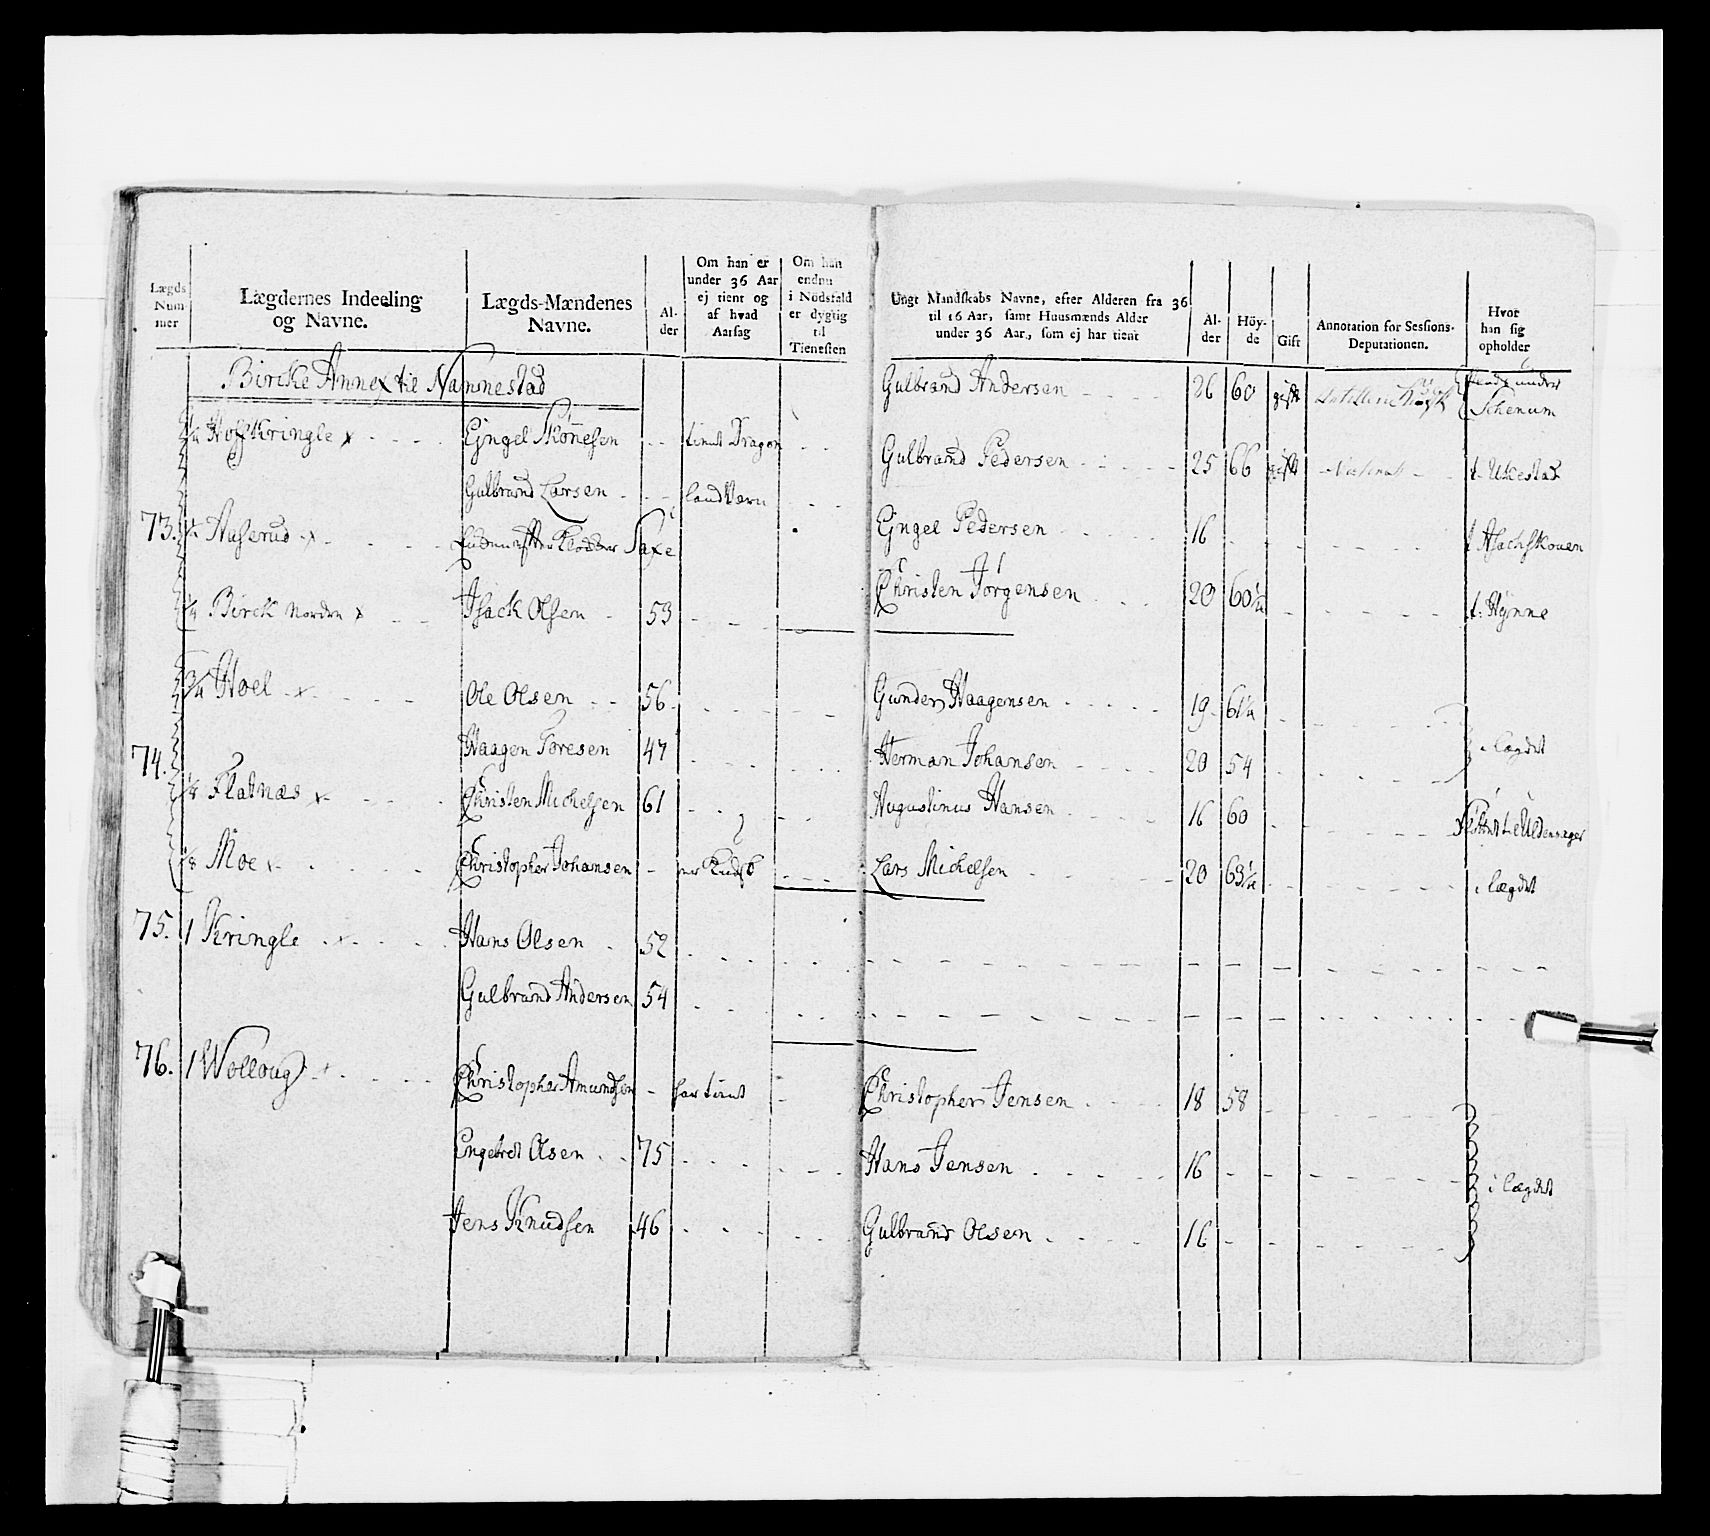 Lægds Nummer
Lægdernes Indeeling og Navne.
Lægds-Mændenes Navne.
Alder
Om han er under 36 Aar ej tient og af hvad Aarsag
Om han endnu i Nödsfald er dygtig til Tienesten
Ungt Mandskabs Navne, efter Alderen fra 36 til 16 Aar, samt Huusmænds Alder under 36 Aar, som ej har tient
Alder
Höyde
Gift
Annotation for Sessions-Deputationen.
Hvor han sig opholder
Bircke Annex til Nannestad
Gulbrand Andersen 26 60 gift
under Schenum
Hoffkringle x Ejngel tient Dragon
Gulbrand Pedersen 25 66 gift t. Ukestad
Gulbrand Larsen Landværn
73. Auserud x
Ejngel Pedersen 16
1/4 Birck Nordre x Isack Olsen 53
Christen Jørgensen 20 60½ t. Hynne
3/4 Hoel x Ole Olsen 56
Gunder Haagensen 19 61¼
74. Haagen Toresen 47
Herman Johansen 20 54 i lægdet
1/8 Flatnæs x Christen Michelsen 61
Augustinus Hansen 16 60
1/8 Moe x Christopher Johansen
Lars Michelsen 20 63½ i lægdet
75. 1 Kringle x Hans Olsen 52
Gulbrand Andersen 54
76. 1 Wolloug x Christopher Amundsen har tient
Christopher Jensen 18 58
Engebret Olsen 75
Hans Jensen 16 i lægdet
Jens Knudsen 46
Gulbrand Olsen 16